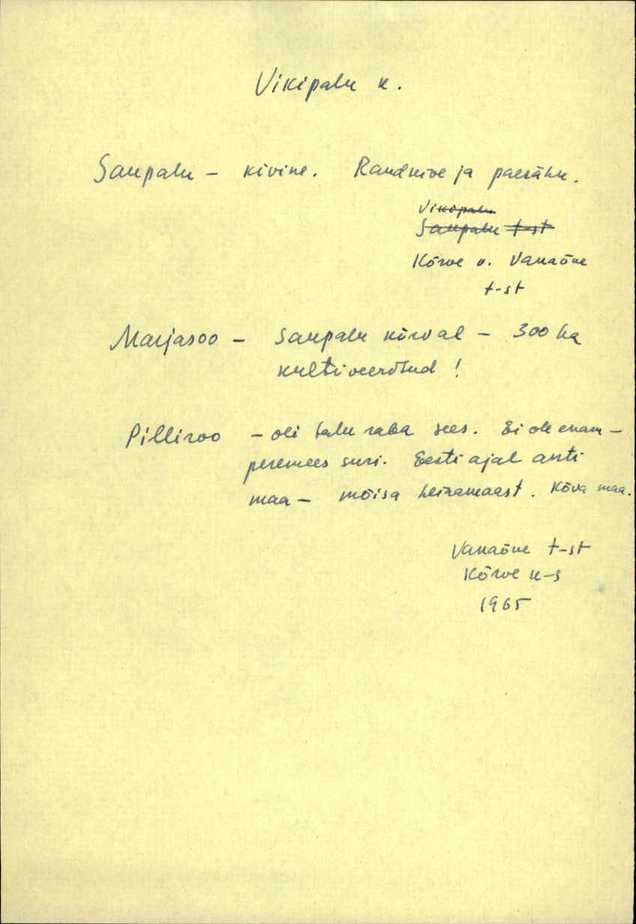 Vikipalu k.
Saupalu – kivine. Raudkive ja paerähu.
Vikipalu
Saupalu t-st
Kõrve v. Vanaõue
t-st
Marjasoo – Saupalu kõrval – 300 ha
kultiveeritud!
Pilliroo – oli talu raba sees. Ei ole enam –
peremees suri. Eesti ajal anti
maa – mõisa heinamaast. Kõva maa.
Vanaõue t-st
Kõrve k-s
1965